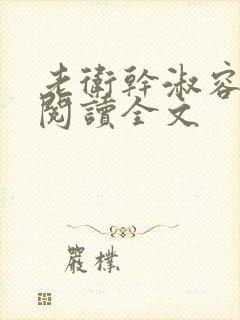 老衛幹淑容
閱讀全文
嚴樸